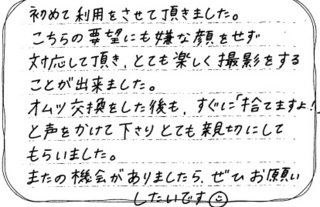 初めて利用をさせて頂きました。
こちらの要望にも嫌な顔をせず
対応して頂き、とても楽しく撮影をする
ことが出来ました。
オムツ交換をした後も、すぐに「捨てますよ!」
と声をかけて下さりとても親切にして
もらいました。
またの機会がありましたら、ぜひお願い
したいです☺